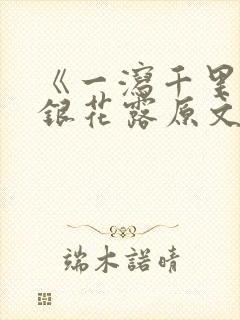 《一瀉千里
銀花露原文
端木諾晴